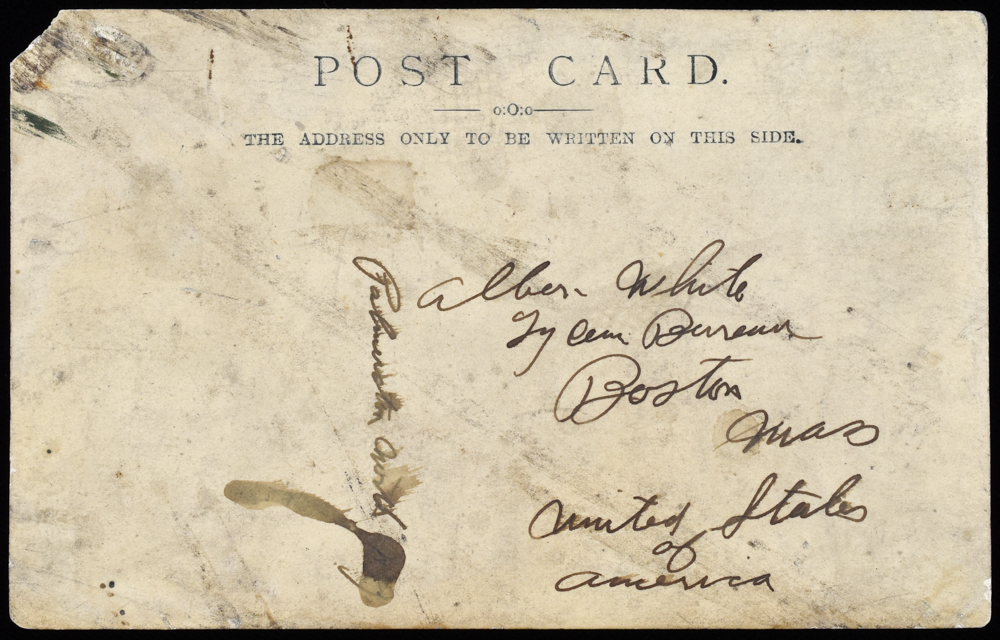 POST CARD.
o:O:o
THE ADDRESS ONLY TO BE WRITTEN ON THIS SIDE.
Alber White
Lyceum Bureau
Boston
Mass
United States
of
america
Palmerston North